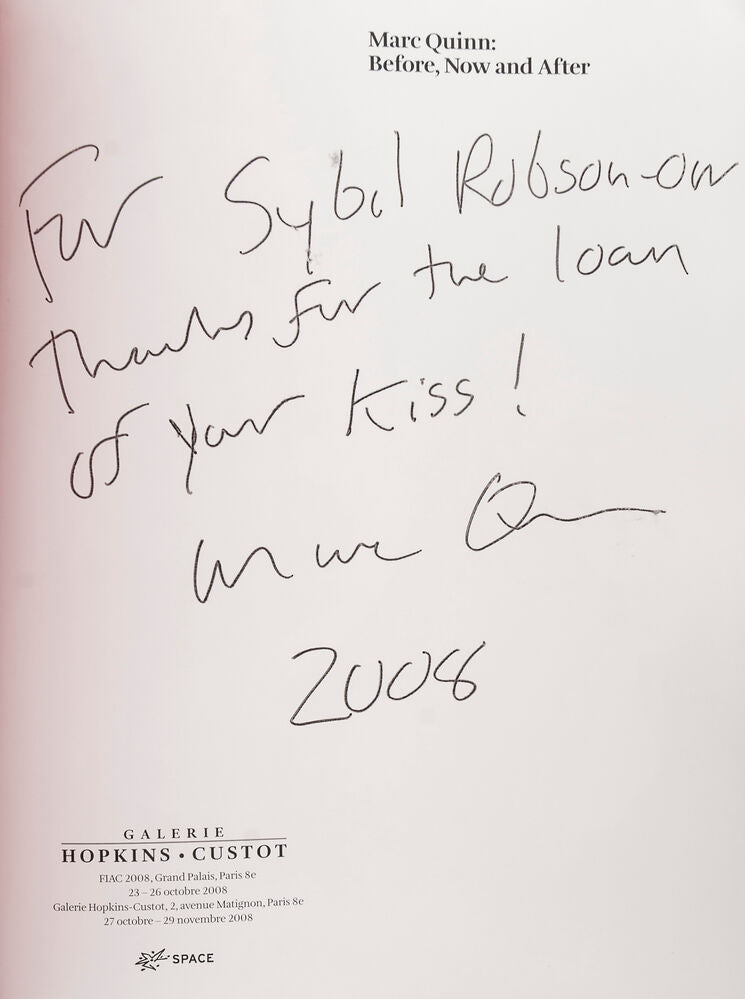 Marc Quinn:
Before, Now and After
For Sybil Robson-Orr
thanks for the loan
of your Kiss!
Marc Quinn
2008
GALERIE
HOPKINS • CUSTOT
FIAC 2008, Grand Palais, Paris 8e
23 – 26 octobre 2008
Galerie Hopkins-Custot, 2, avenue Matignon, Paris 8e
27 octobre – 29 novembre 2008
SPACE